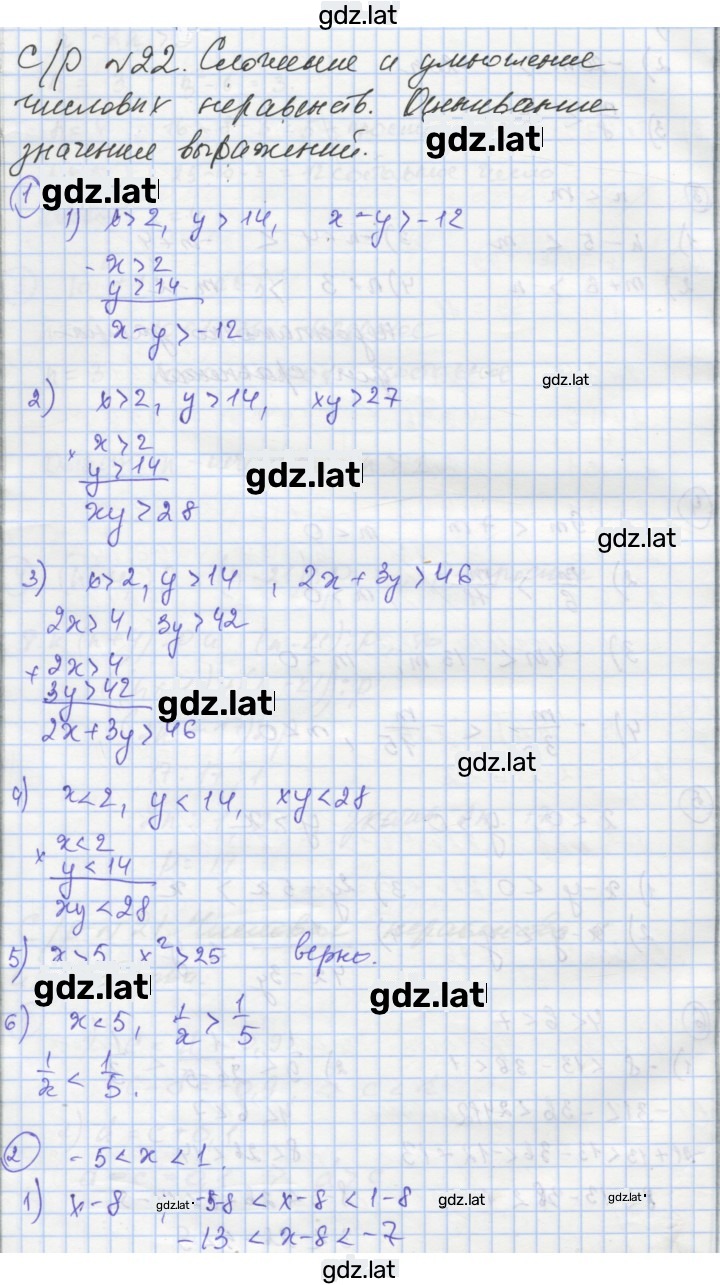 gdz.lat
С/р №22. Сложение и умножение
числових неравенств. Оценивание
значения выражений. gdz.lat
1 gdz.lat
1) x>2, y>14, x-y>-12
- x>2
y>14
x-y>-12
gdz.lat
2) x>2, y>14, xy>27
× x>2
y>14
gdz.lat
xy>28
gdz.lat
3) x>2, y>14, 2x+3y>46
2x>4, 3y>42
+ 2x>4
3y>42
gdz.lat
2x+3y>46
gdz.lat
4) x<2, y<14, xy<28
× x<2
y<14
xy<28
5) x>5 x²>25 верно.
gdz.lat gdz.lat
6) x<5, 1/x > 1/5
1/x < 1/5.
2 -5<x<1.
1) x-8 gdz.lat -5-8<x-8<1-8 gdz.lat gdz.lat
-13<x-8<-7
gdz.lat